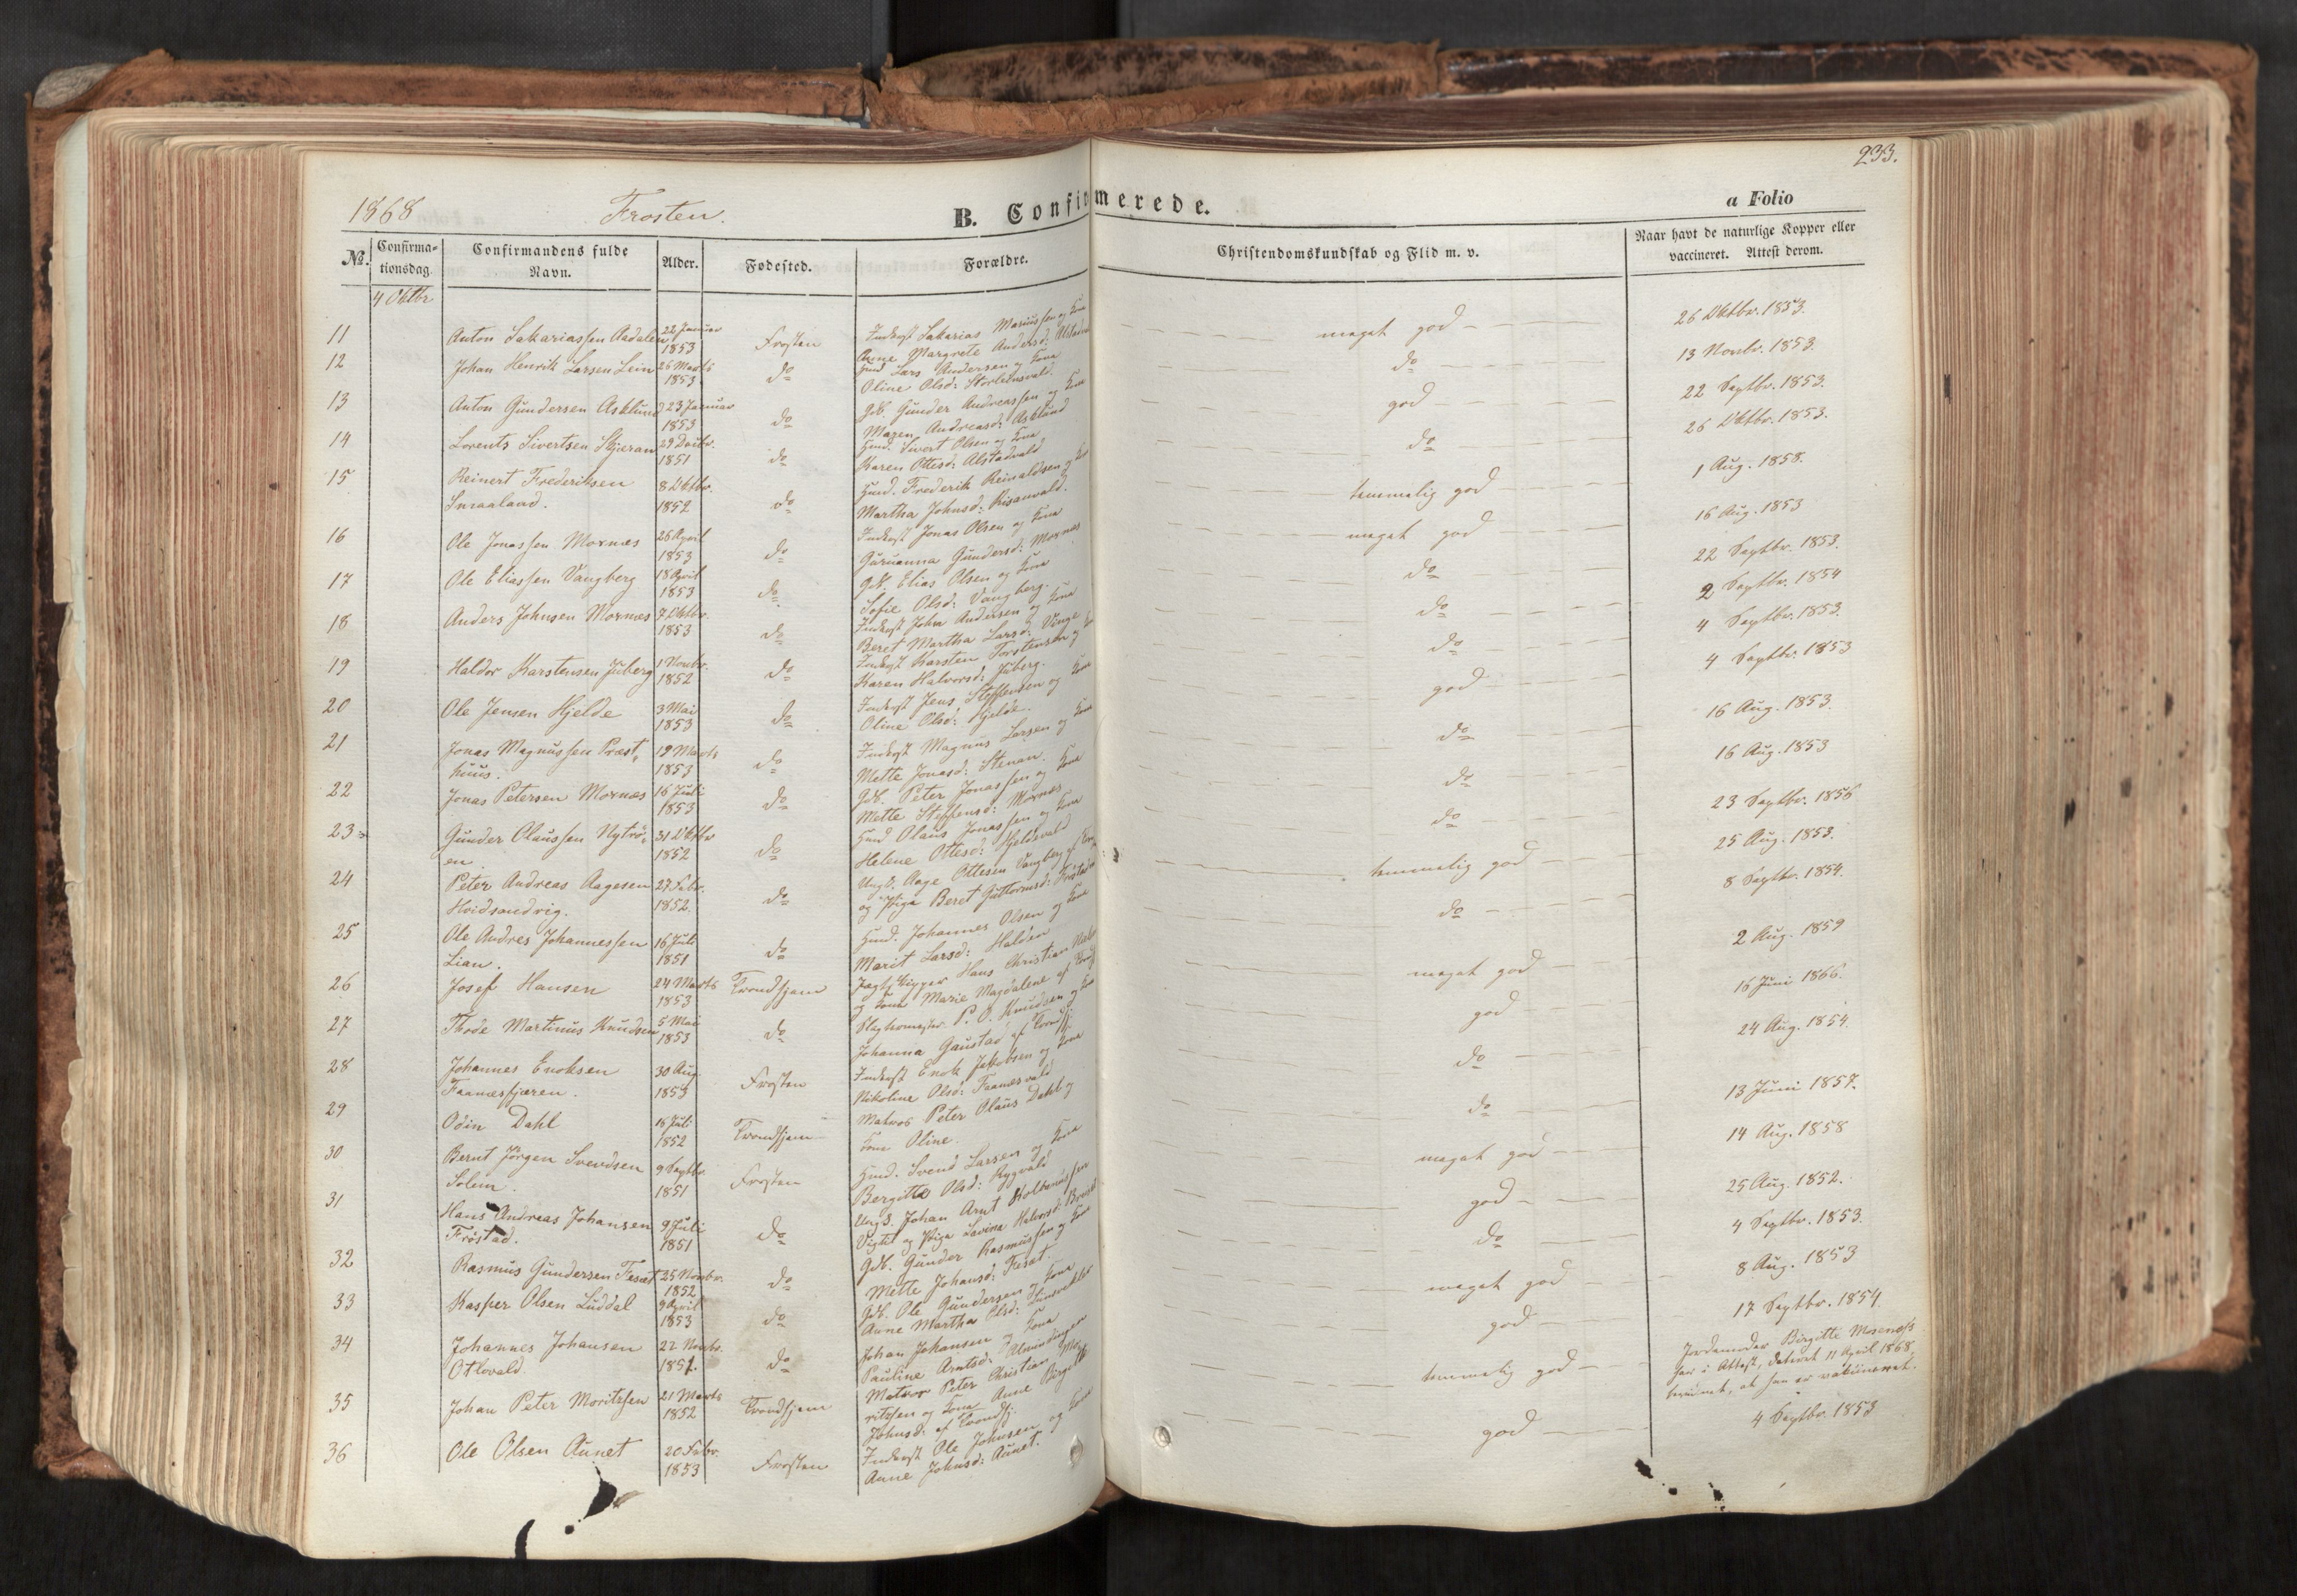 233.
1868 Frosten.
B. Confirmerede.
a Folio
№. Confirma=tionsdag. Confirmandens fulde Navn. Alder. Fødested. Forældre. Christendomskundskab og Flid m. v. Naar havt de naturlige Kopper eller vaccineret. Attest derom.
4 Oktbr
11 Anton Sakariassen Aadalen 22 Januar 1853 Frosten Inderst Sakarias Mariussen og Kone Anne Margrete Andersd: meget god 26 Oktbr. 1853.
12 Johan Henrik Larsen Lein 26 Marts 1853 do Husmd Lars Andersen og Kone Oline Olsd: Storleinsvald. do 13 Novbr. 1853.
13 Anton Gundersen Asklund 23 Januar 1853 do Gdb. Gunder Andreassen og Kone Maren Andreasd: Asklund god 22 Septbr. 1853.
14 Lorents Sivertsen Skjeran 29 Decbr. 1851 do Husmd. Sivert Olsen og Kone Karen Ottesd: Alstadvald do 26 Oktbr. 1853.
15 Reinert Frederiksen Smaaland. 8 Oktbr. 1852 do Husmd. Frederik Reinaldsen og Kone Martha Johnsd: Risanvald. temmelig god 1 Aug. 1858.
16 Ole Jonassen Moxnes 26 April 1853 do Inderst Jonas Olsen og Kone Guruanna Gundersd: Moxnes meget god 16 Aug. 1853
17 Ole Eliassen Vangberg 18 April 1853 do Gdb. Elias Olsen og Kone Sofie Olsd: Vangberg. do 22 Septbr. 1853.
18 Anders Johnsen Moxnes 7 Oktbr. 1853 do Inderst John Andersen og Kone Beret Martha Larsd: Vinge do 2 Septbr. 1854
19 Haldor Karstensen Juberg 1 Novbr. 1852 do Inderst Karsten Torstensen og Kone Karen Halvorsd: Juberg. do 4 Septbr. 1853.
20 Ole Jensen Hjelde 3 Mai 1853 do Inderst Jens Steffensen og Kone Oline Olsd: Hjelde. god 4 Septbr. 1853
21 Jonas Magnussen Præsthuus. 19 Marts 1853 do Inderst Magnus Larsen og Kone Mette Jonasd: Stenan. do 16 Aug. 1853.
22 Jonas Petersen Moxnes 16 Juli 1853 do Gdb. Peter Jonassen og Kone Mette Steffensd: Moxnes do 16 Aug. 1853
23 Gunder Olaussen Nytrøen 31 Oktbr 1852 do Husmd Olaus Jonassen og Kone Helene Ottesd: Hjeldevald do 23 Septbr. 1856
24 Peter Andreas Aagesen Hvidsandvig. 27 Febr. 1852. do Ungk. Aage Ottesen Vangberg og Pige Beret Guttormsd: temmelig god 25 Aug. 1853.
25 Ole Andres Johannessen Lian. 16 Juli 1851 do Husmd. Johannes Olsen og Kone Marit Larsd: Halden do 8 Septbr. 1854.
26 Josef Hansen 24 Marts 1853 Trondhjem Jagtskipper Hans Christian og Kone Marie Magdalene af meget god 2 Aug. 1859
27 Thode Martinus Knudsen 5 Mai 1853 do P. O. Knudsen og Kone Johanna Gaustad af Trondhj. god 16 Juni 1866.
28 Johannes Enoksen Faanesfjæren. 30 Aug. 1853 Frosten Inderst Enok Jakobsen og Kone Nikoline Olsd: Faanesvald do 24 Aug. 1854.
29 Odin Dahl 16 Juli 1852 Trondhjem Matros Peter Olaus Dahl og Kone Oline. do 13 Juni 1857.
30 Bernt Jörgen Svendsen Solem. 9 Septbr. 1851 Frosten Husmd. Svend Larsen og Kone Bergitta Olsd: Rygvald meget god 14 Aug. 1858
31 Hans Andreas Johansen Frøstad. 9 Juli 1851 do Ungk. Johan Arnt Kolbanussen og Pige Lovina Halvorsd: god 25 Aug. 1852.
32 Rasmus Gundersen Fesæt 25 Novbr. 1852 do Gdb. Gunder Rasmussen og Kone Mette Johansd: Fesæt. do 4 Septbr. 1853.
33 Kasper Olsen Luddal 9 April 1853 do Gdb. Ole Gundersen og Kone Anne Martha Olsd: meget god 8 Aug. 1853
34 Johannes Johansen Otlovald 22 Novbr. 1851. do Johan Johansen og Kone Pauline Arntsd: god 17 Septbr. 1854.
35 Johan Peter Moritzsen 21 Marts 1852 Trondhjem Matros Peter Christian Moritzsen og Kone Anne Birgitte Johnsd. af Trondhj. temmelig god Jordemoder Birgitte Moseness har i Attest, dateret 11 April 1868, bevidnet, at han er vakcineret.
36 Ole Olsen Aunet 20 Febr. 1853 Frosten Inderst Ole Johnsen og Kone Anne Johnsd: Aunet. god 4 Septbr. 1853